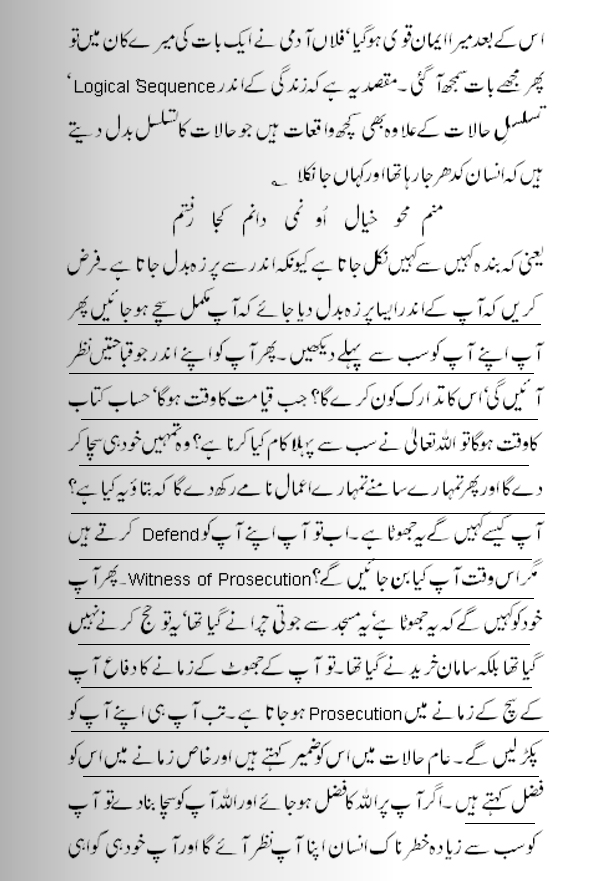 اس کے بعد میرا ایمان قوی ہو گیا‘ فلاں آدمی نے ایک بات کی میرے کان میں تو
پھر مجھے بات سمجھ آ گئی ۔ مقصد یہ ہے کہ زندگی کے اندر Logical Sequence‘
تسلسلِ حالات کے علاوہ بھی کچھ واقعات ہیں جو حالات کا تسلسل بدل دیتے
ہیں کہ انسان کدھر جا رہا تھا اور کہاں جا نکلا ؎
منم محوِ خیالِ اُو نمی دانم کجا رفتم
یعنی کہ بندہ کہیں سے کہیں نکل جاتا ہے کیونکہ اندر سے پرزہ بدل جاتا ہے ۔ فرض
کریں کہ آپ کے اندر ایسا پرزہ بدل دیا جائے کہ آپ مکمل سچے ہو جائیں پھر
آپ اپنے آپ کو سب سے پہلے دیکھیں ۔ پھر آپ کو اپنے اندر جو قباحتیں نظر
آئیں گی‘ اس کا تدارک کون کرے گا؟ جب قیامت کا وقت ہو گا‘ حساب کتاب
کا وقت ہو گا تو اللہ تعالیٰ نے سب سے پہلا کام کیا کرنا ہے؟ وہ تمہیں خود ہی سچا کر
دے گا اور پھر تمہارے سامنے تمہارے اعمال نامے رکھ دے گا کہ بتاؤ یہ کیا ہے؟
آپ کیسے کہیں گے یہ جھوٹا ہے ۔ اب تو آپ اپنے آپ کو Defend کرتے ہیں
مگر اس وقت آپ کیا بن جائیں گے؟ Witness of Prosecution۔ پھر آپ
خود کو کہیں گے کہ یہ جھوٹا ہے‘ یہ مسجد سے جوتی چرانے گیا تھا‘ یہ تو حج کرنے نہیں
گیا تھا بلکہ سامان خریدنے گیا تھا ۔ تو آپ کے جھوٹ کے زمانے کا دفاع آپ
کے سچ کے زمانے میں Prosecution ہو جاتا ہے ۔ تب آپ ہی اپنے آپ کو
پکڑ لیں گے ۔ عام حالات میں اس کو ضمیر کہتے ہیں اور خاص زمانے میں اس کو
فضل کہتے ہیں ۔ اگر آپ پر اللہ کا فضل ہو جائے اور اللہ آپ کو سچا بنا دے تو آپ
کو سب سے زیادہ خطرناک انسان اپنا آپ نظر آئے گا اور آپ خود ہی گواہی